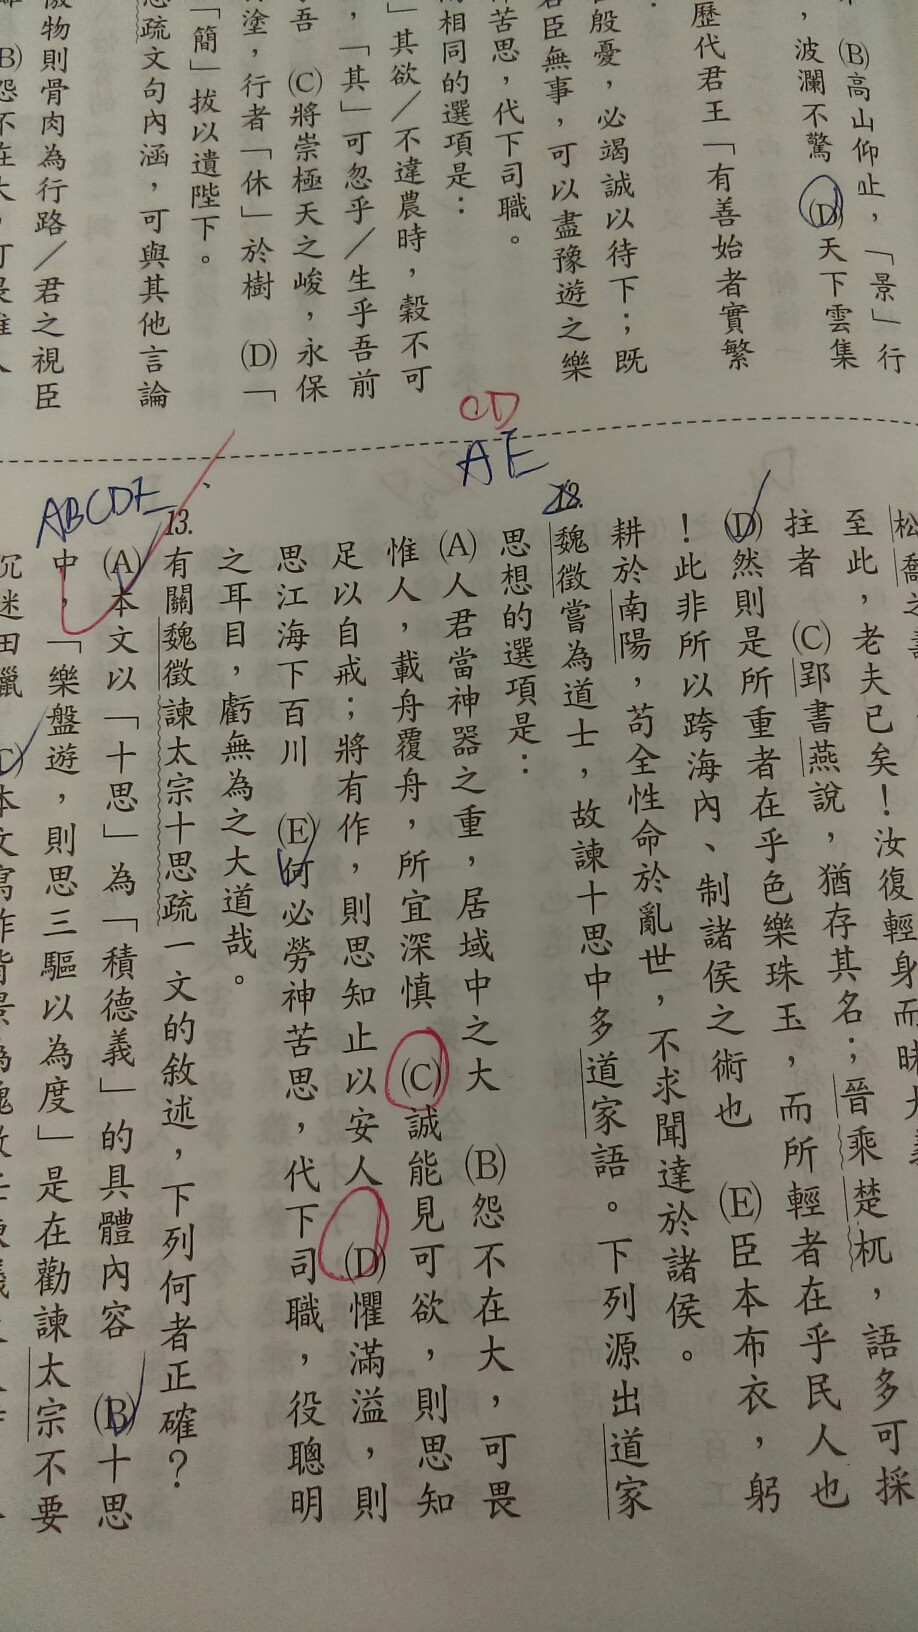 (B)高山仰止，「景」行
，波瀾不驚 (D)天下雲集
歷代君王「有善始者實繁
殷憂，必竭誠以待下；既
君臣無事，可以盡豫遊之樂
苦思，代下司職。
相同的選項是：
」其欲／不違農時，穀不可
，「其」可忽乎／生乎吾前
吾 (C)將崇極天之峻，永保
塗，行者「休」於樹 (D)「
「簡」拔以遺陛下。
思疏文句內涵，可與其他言論
傲物則骨肉為行路／君之視臣
CD
AE
ABCDE
至此，老夫已矣！汝復輕身而昧大義
拄者 (C)郢書燕說，猶存其名；晉乘楚杌，語多可採
(D)然則是所重者在乎色樂珠玉，而所輕者在乎民人也
！此非所以跨海內、制諸侯之術也 (E)臣本布衣，躬
耕於南陽，苟全性命於亂世，不求聞達於諸侯。
12.
魏徵嘗為道士，故諫十思中多道家語。下列源出道家
思想的選項是：
(A)人君當神器之重，居域中之大 (B)怨不在大，可畏
惟人，載舟覆舟，所宜深慎 (C)誠能見可欲，則思知
足以自戒；將有作，則思知止以安人 (D)懼滿溢，則
思江海下百川 (E)何必勞神苦思，代下司職，役聰明
之耳目，虧無為之大道哉。
13.
有關魏徵諫太宗十思疏一文的敘述，下列何者正確？
(A)本文以「十思」為「積德義」的具體內容 (B)十思
中，「樂盤遊，則思三驅以為度」是在勸諫太宗不要
沉迷田獵